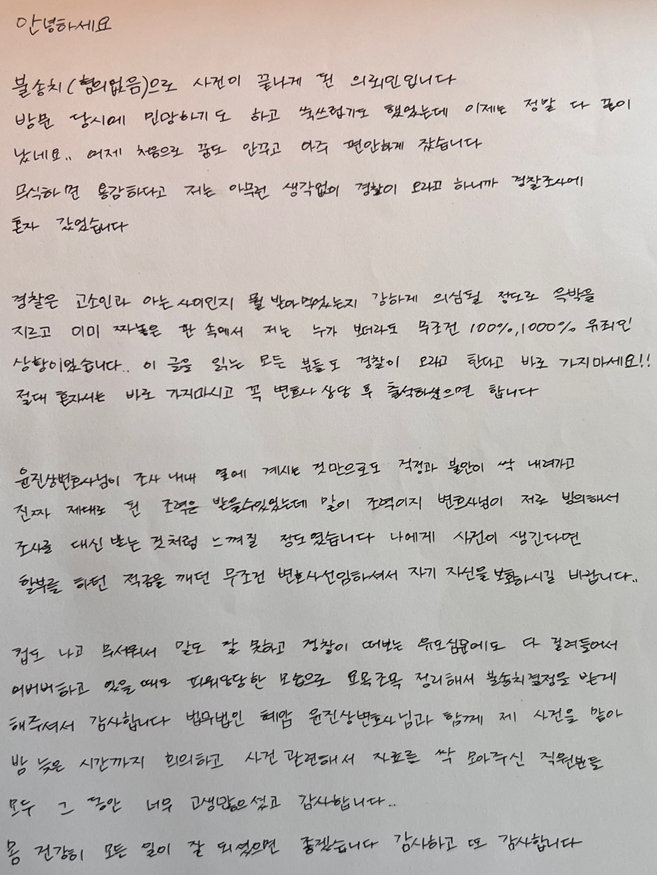 안녕하세요
불송치(혐의없음)으로 사건이 끝나게 된 의뢰인입니다
방문 당시에 민망하기도 하고 쑥쓰럽기도 했었는데 이제는 정말 다 끝이
났네요.. 어제 처음으로 꿈도 안꾸고 아주 편안하게 잤습니다
무식하면 용감하다고 저는 아무런 생각없이 경찰이 오라고 하니까 경찰조사에
혼자 갔었습니다
경찰은 고소인과 아는 사이인지 뭘 받아먹었는지 강하게 의심될 정도로 윽박을
지르고 이미 짜놓은 판 속에서 저는 누가 보더라도 무조건 100%, 1000% 유죄인
상황이었습니다.. 이 글을 읽는 모든 분들도 경찰이 오라고 한다고 바로 가지마세요!!
절대 혼자서는 바로 가지마시고 꼭 변호사 상담 후 출석하셨으면 합니다
윤진상변호사님이 조사 내내 옆에 계시는 것만으로도 걱정과 불안이 싹 내려가고
진짜 제대로 된 조력은 받을수있었는데 말이 조력이지 변호사님이 저로 빙의해서
조사를 대신 받는 것처럼 느껴질 정도였습니다 나에게 사건이 생긴다면
할부를 하던 적금을 깨던 무조건 변호사선임하셔서 자기 자신을 보호하시길 바랍니다..
겁도 나고 무서워서 말도 잘 못하고 경찰이 떠보는 유도심문에도 다 걸려들어서
어버버하고 있을때도 파워당당한 모습으로 요목조목 정리해서 불송치결정을 받게
해주셔서 감사합니다 법무법인 혜암 윤진상변호사님과 함께 제 사건을 맡아
밤 늦은 시간까지 회의하고 사건 관련해서 자료를 싹 모아주신 직원분들
모두 그 동안 너무 고생많으셨고 감사합니다..
몸 건강히 모든 일이 잘 되었으면 좋겠습니다 감사하고 또 감사합니다